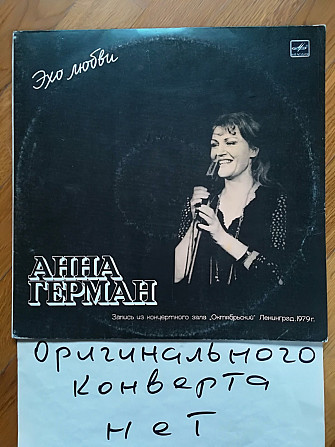 Эхо любви
АННА
ГЕРМАН
Запись из концертного зала „Октябрьский” Ленинград, 1979 г.
Оригинального
конверта
нет